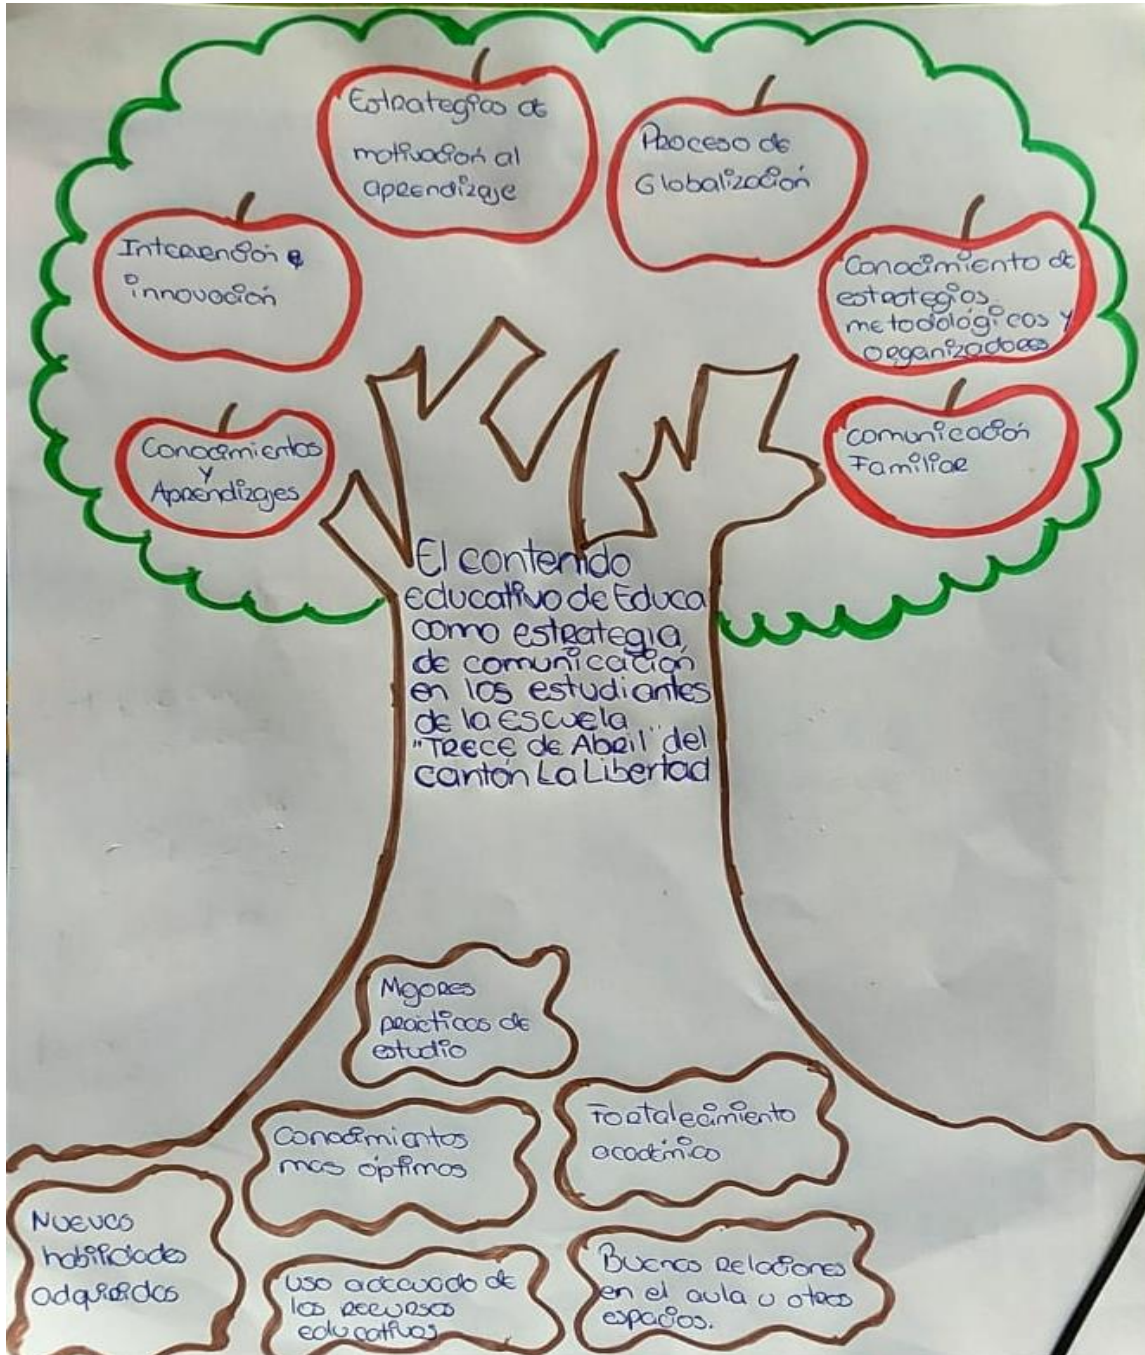 Estrategias de
motivación al
aprendizaje
Proceso de
Globalización
Intervención e
innovación
Conocimiento de
estrategias
metodológicos y
organizadores
Conocimientos
y
Aprendizajes
Comunicación
Familiar
El contenido
educativo de Educa
como estrategia
de comunicación
en los estudiantes
de la escuela
"Trece de Abril" del
cantón La Libertad
Mejores
prácticas de
estudio
Fortalecimiento
académico
Conocimientos
mas óptimos
Nuevas
habilidades
adquiridas
uso adecuado de
los recursos
educativos
Buenas relaciones
en el aula u otros
espacios.